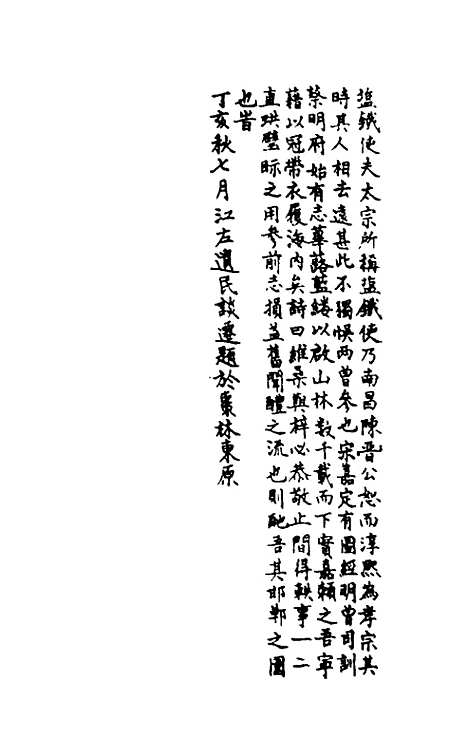 盐鐡使夫太宗所稱盐鐡使乃南昌陳晋公恕而淳熙為孝宗其
時其人相去遠甚此不獨悞两曾參也宋嘉定有圖經明曾司訓
蔡明府始有志蓽蕗藍縷以啟山林数千載而下實嘉頼之吾寜
藉以冠帶衣履海内矣詩曰維桑與梓必恭敬止間得軼事一二
直珙璧眎之用參前志損益舊聞醴之流也則酏吾其邯鄲之圍
也昔
丁亥秋七月江左遺民談遷題於棗林東原